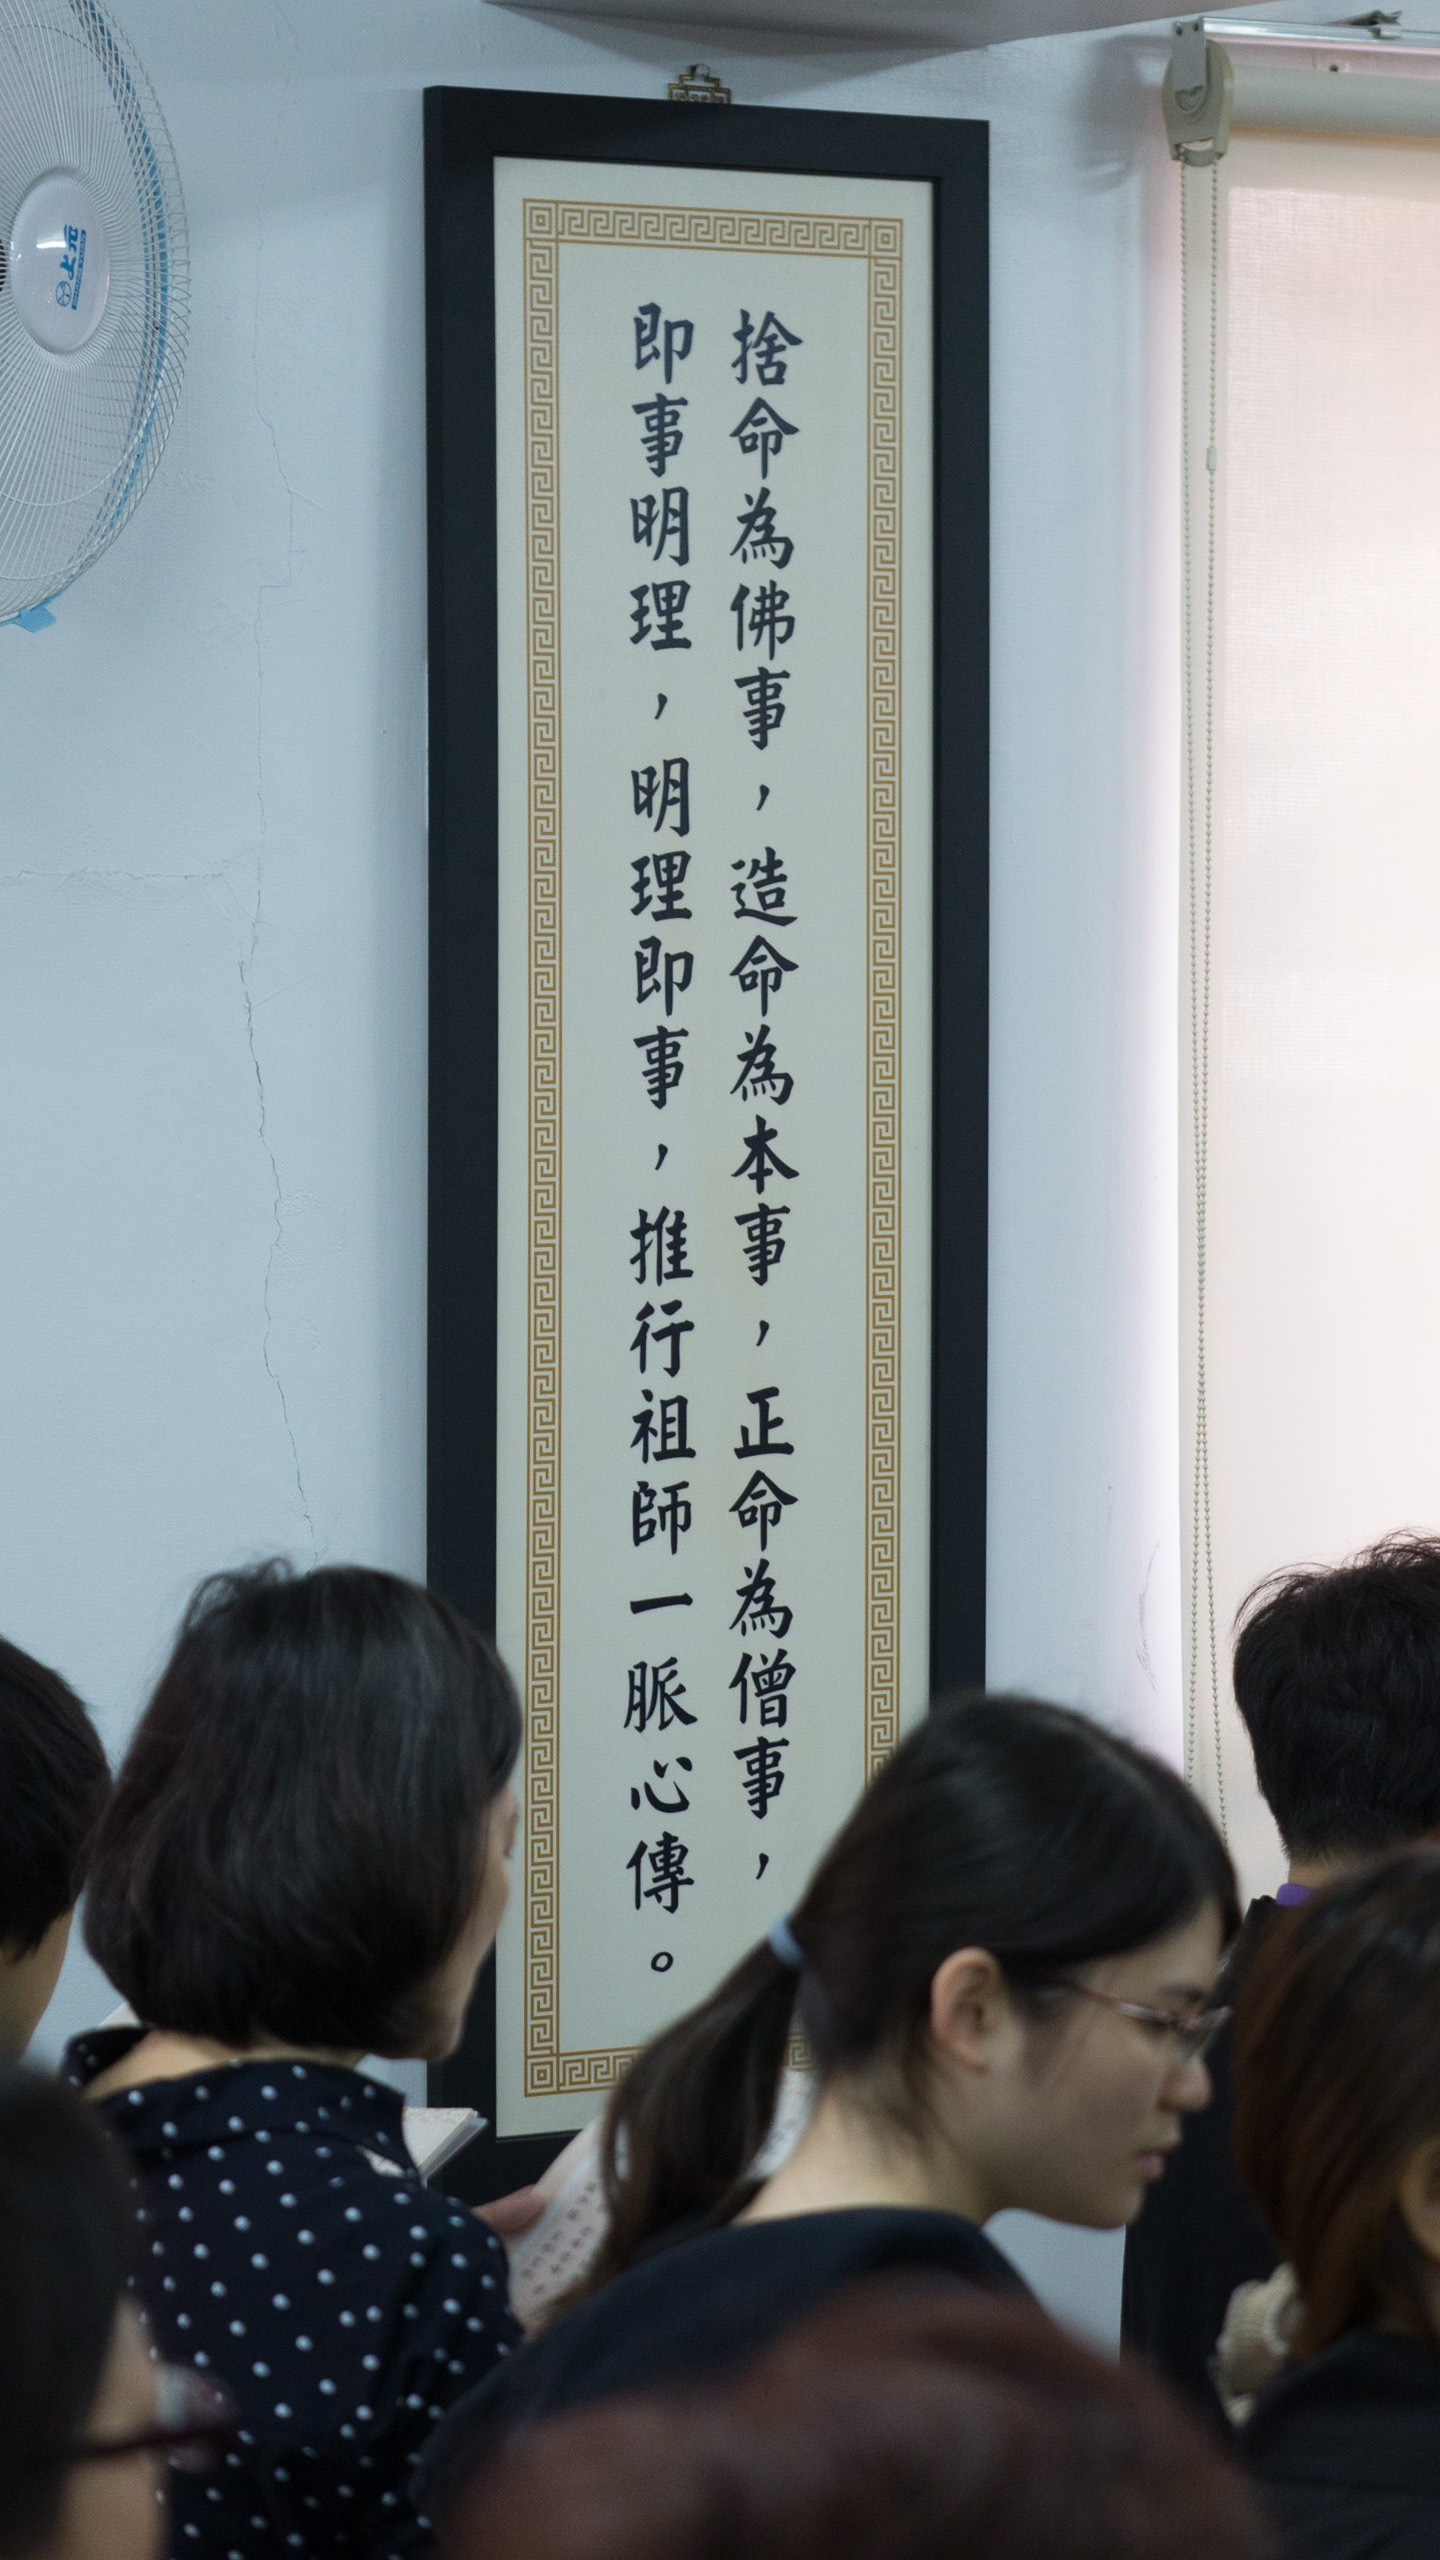 捨命為佛事，造命為本事，正命為僧事，
即事明理，明理即事，推行祖師一脈心傳。